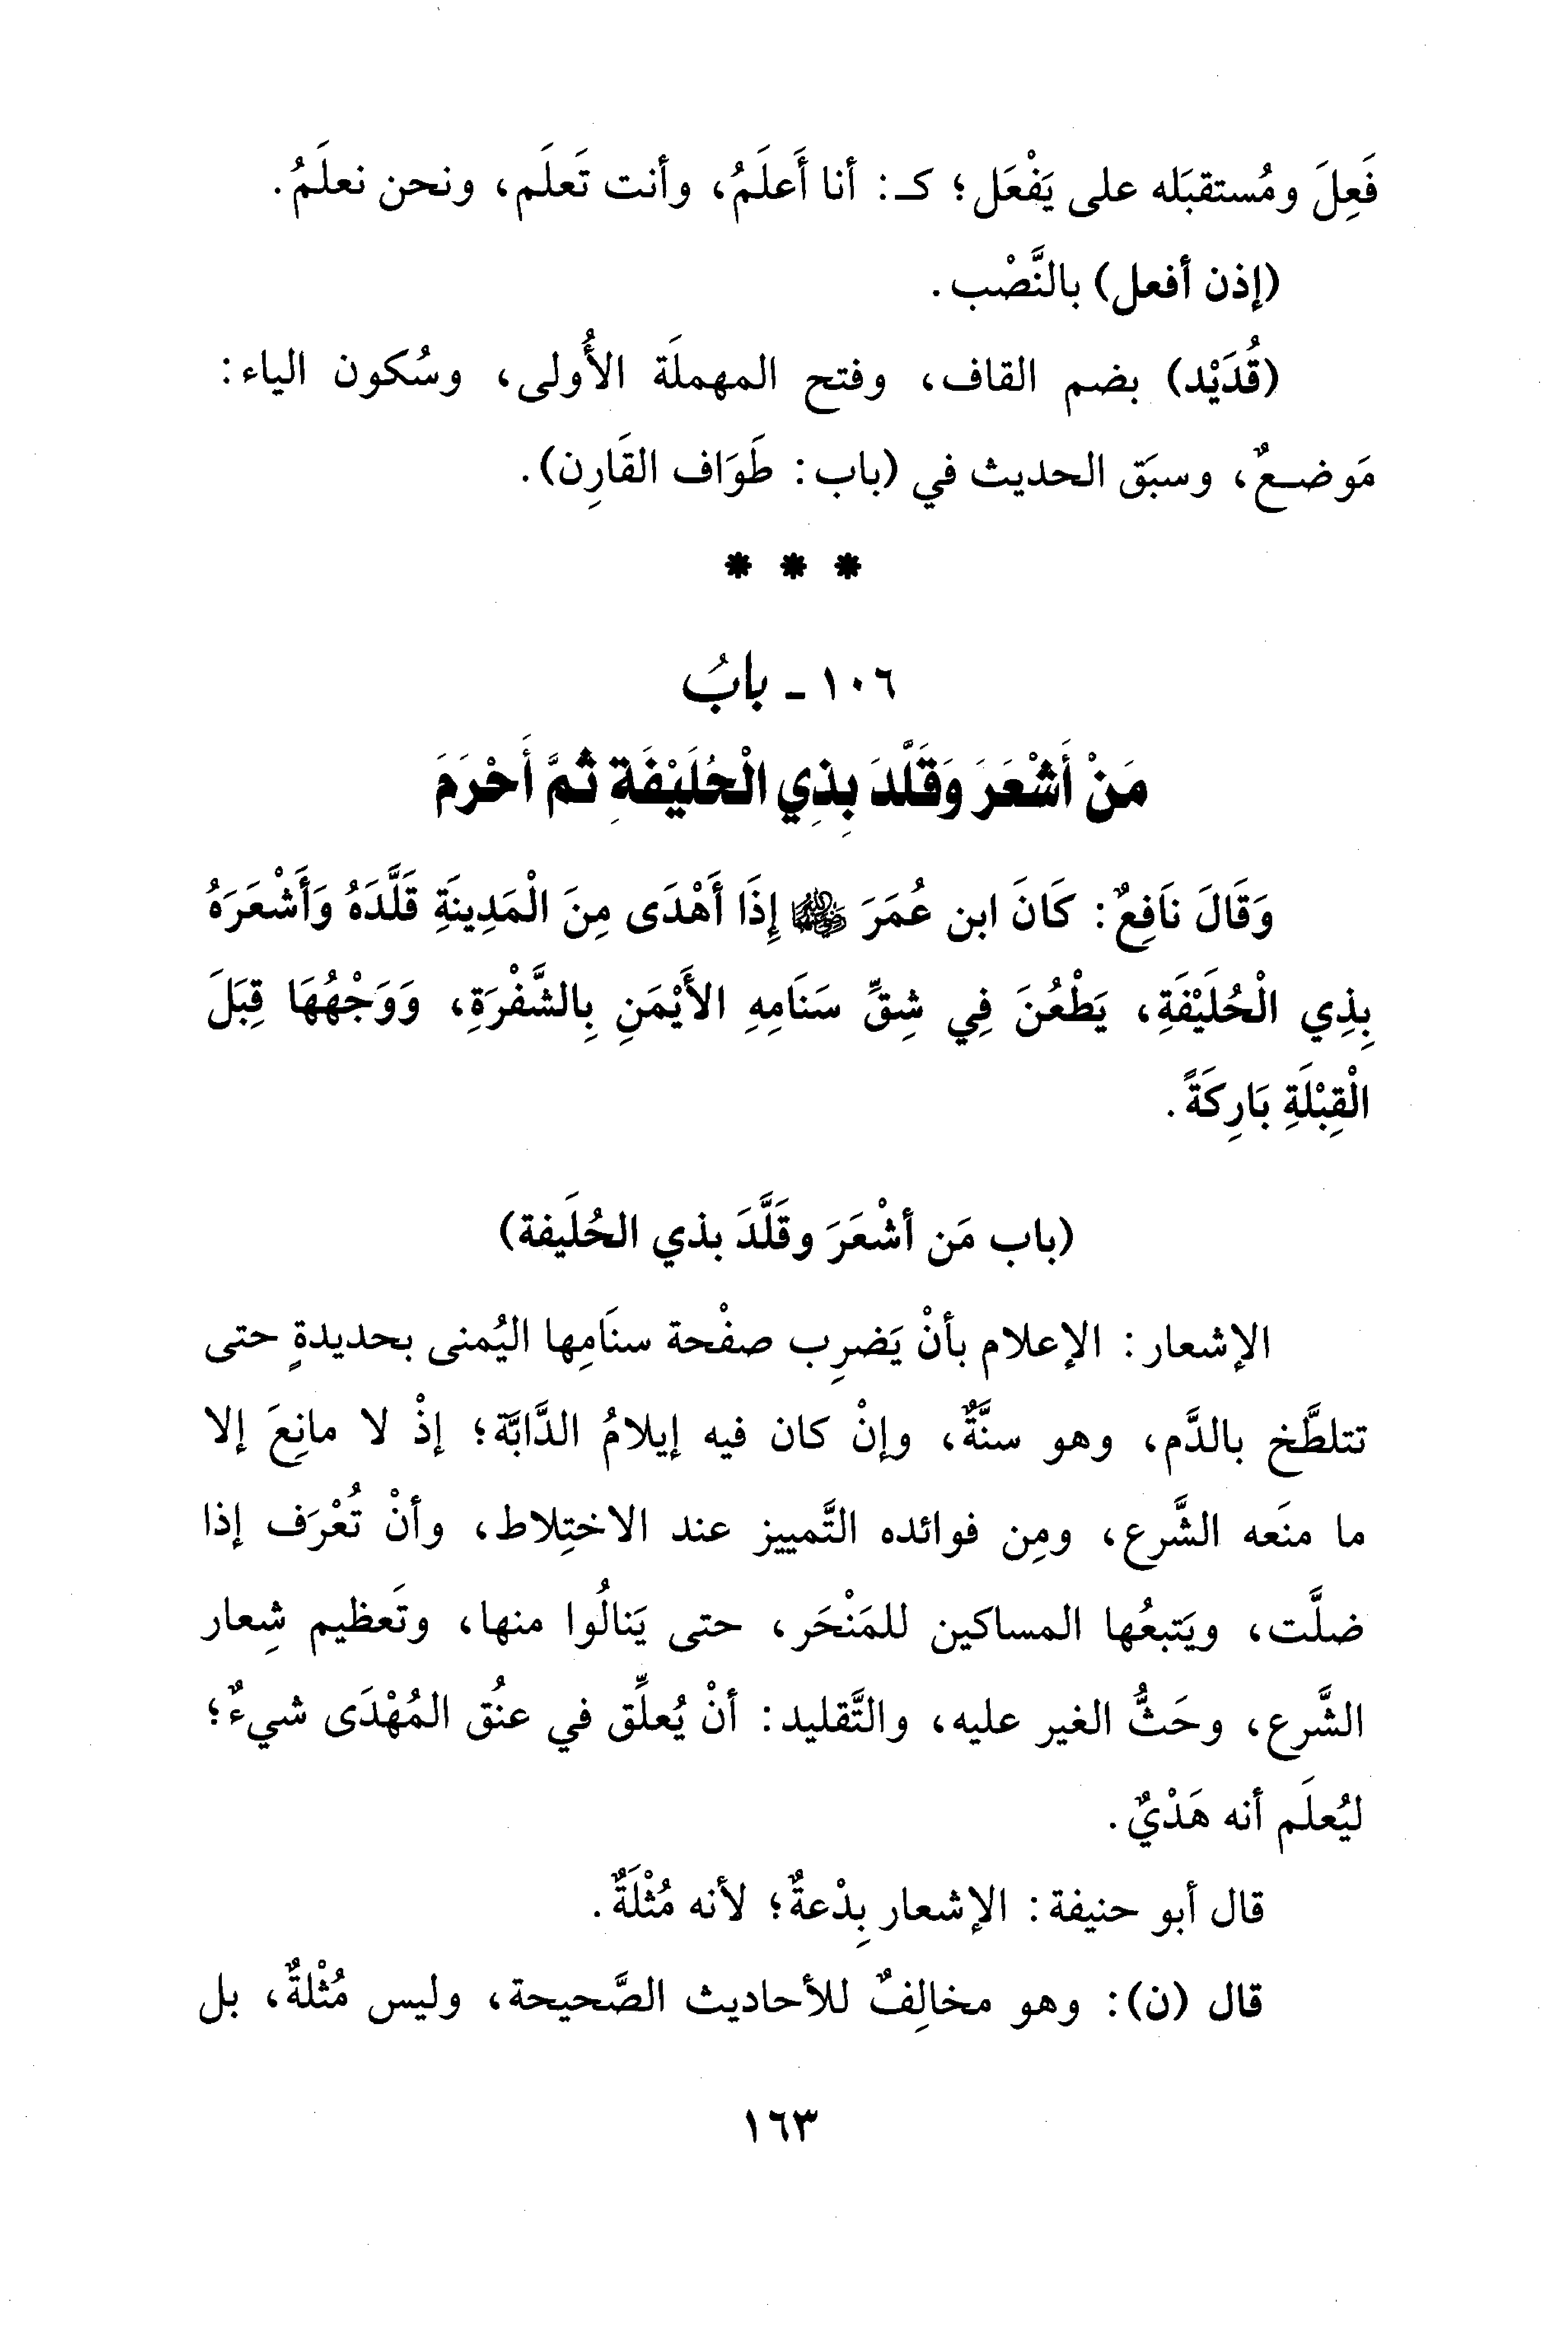 فَعِلَ ومُستقبَله على يَفْعَل؛ كـ: أنا أَعلَمُ، وأنت تَعلَم، ونحن نعلَمُ.
(إذن أفعل) بالنَّصْب.
(قُدَيْد) بضم القاف، وفتح المهملَة الأُولى، وسُكون الياء:
مَوضـعٌ، وسبَق الحديث في (باب: طَوَاف القَارِن).
* * *
١٠٦ - بابُ
مَنْ أَشْعَرَ وَقَلَّدَ بِذِي الْحُلَيْفَةِ ثمَّ أَحْرَمَ
وَقَالَ نَافِعٌ: كَانَ ابن عُمَرَ ﵁ إِذَا أَهْدَى مِنَ الْمَدِينَةِ قَلَّدَهُ وَأَشْعَرَهُ
بِذِي الْحُلَيْفَةِ، يَطْعُنَ فِي شِقِّ سَنَامِهِ الأَيْمَنِ بِالشَّفْرَةِ، وَوَجْهُهَا قِبَلَ
الْقِبْلَةِ بَارِكَةً.
(باب مَن أشْعَرَ وقَلَّدَ بذي الحُلَيفة)
الإشعار: الإعلام بأنْ يَضرِب صفْحة سنَامِها اليُمنى بحديدةٍ حتى
تتلطَّخ بالدَّم، وهو سنَّةٌ، وإنْ كان فيه إيلامُ الدَّابَّة؛ إذْ لا مانِعَ إلا
ما منَعه الشَّرع، ومِن فوائده التَّمييز عند الاختِلاط، وأنْ تُعْرَف إذا
ضلَّت، ويَتبعُها المساكين للمَنْحَر، حتى يَنالُوا منها، وتَعظيم شِعار
الشَّرع، وحَثُّ الغير عليه، والتَّقليد: أنْ يُعلِّق في عنُق المُهْدَى شيءٌ؛
ليُعلَم أنه هَدْيٌ.
قال أبو حنيفة: الإشعار بِدْعةٌ؛ لأنه مُثْلَةٌ.
قال (ن): وهو مخالِفٌ للأحاديث الصَّحيحة، وليس مُثْلةٌ، بل
١٦٣